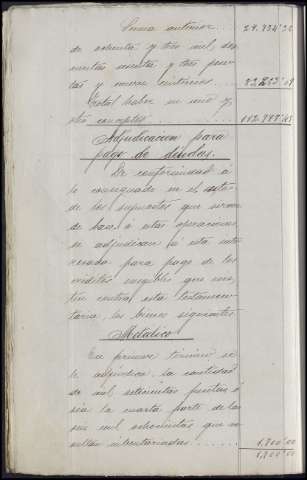 Suma anterior . . . 29.734'36
de ochenta y tres mil, dos
cientas sesenta y tres pese
tas y nueve céntimos . . . 83.263'09
Total haber en uno y
otro concepto . . . 112.997'45
Adjudicacion para
pago de deudas.
De conformidad a
lo consignado en el
de los supuestos que sirven
de base á estas operaciones
se adjudican á esta inte
resada para pago de los
créditos exigibles que exis
ten contra esta testamen
taria, los bienes siguientes
Metalico
En primer término se
le adjudica la cantidad
de mil, setecientas pesetas ó
sea la cuarta parte de las
seis mil ochocientas que re
sultan inventariadas . . . 1,700'00
1,700'00